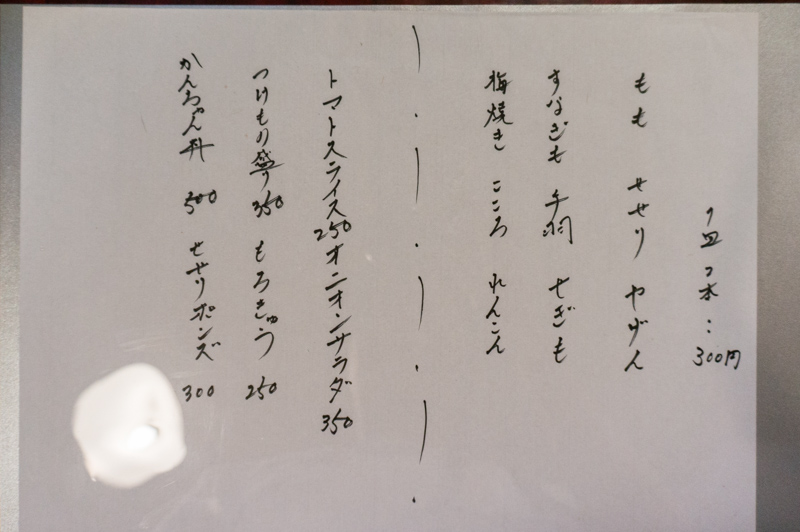 1皿2本：300円
もも せせり やげん
すなぎも 手羽 せぎも
梅焼き こころ れんこん
トマトスライス 250 オニオンサラダ 350
つけもの盛り 350 もろきゅう 250
かんちゃん丼 500 せせりポンズ 300